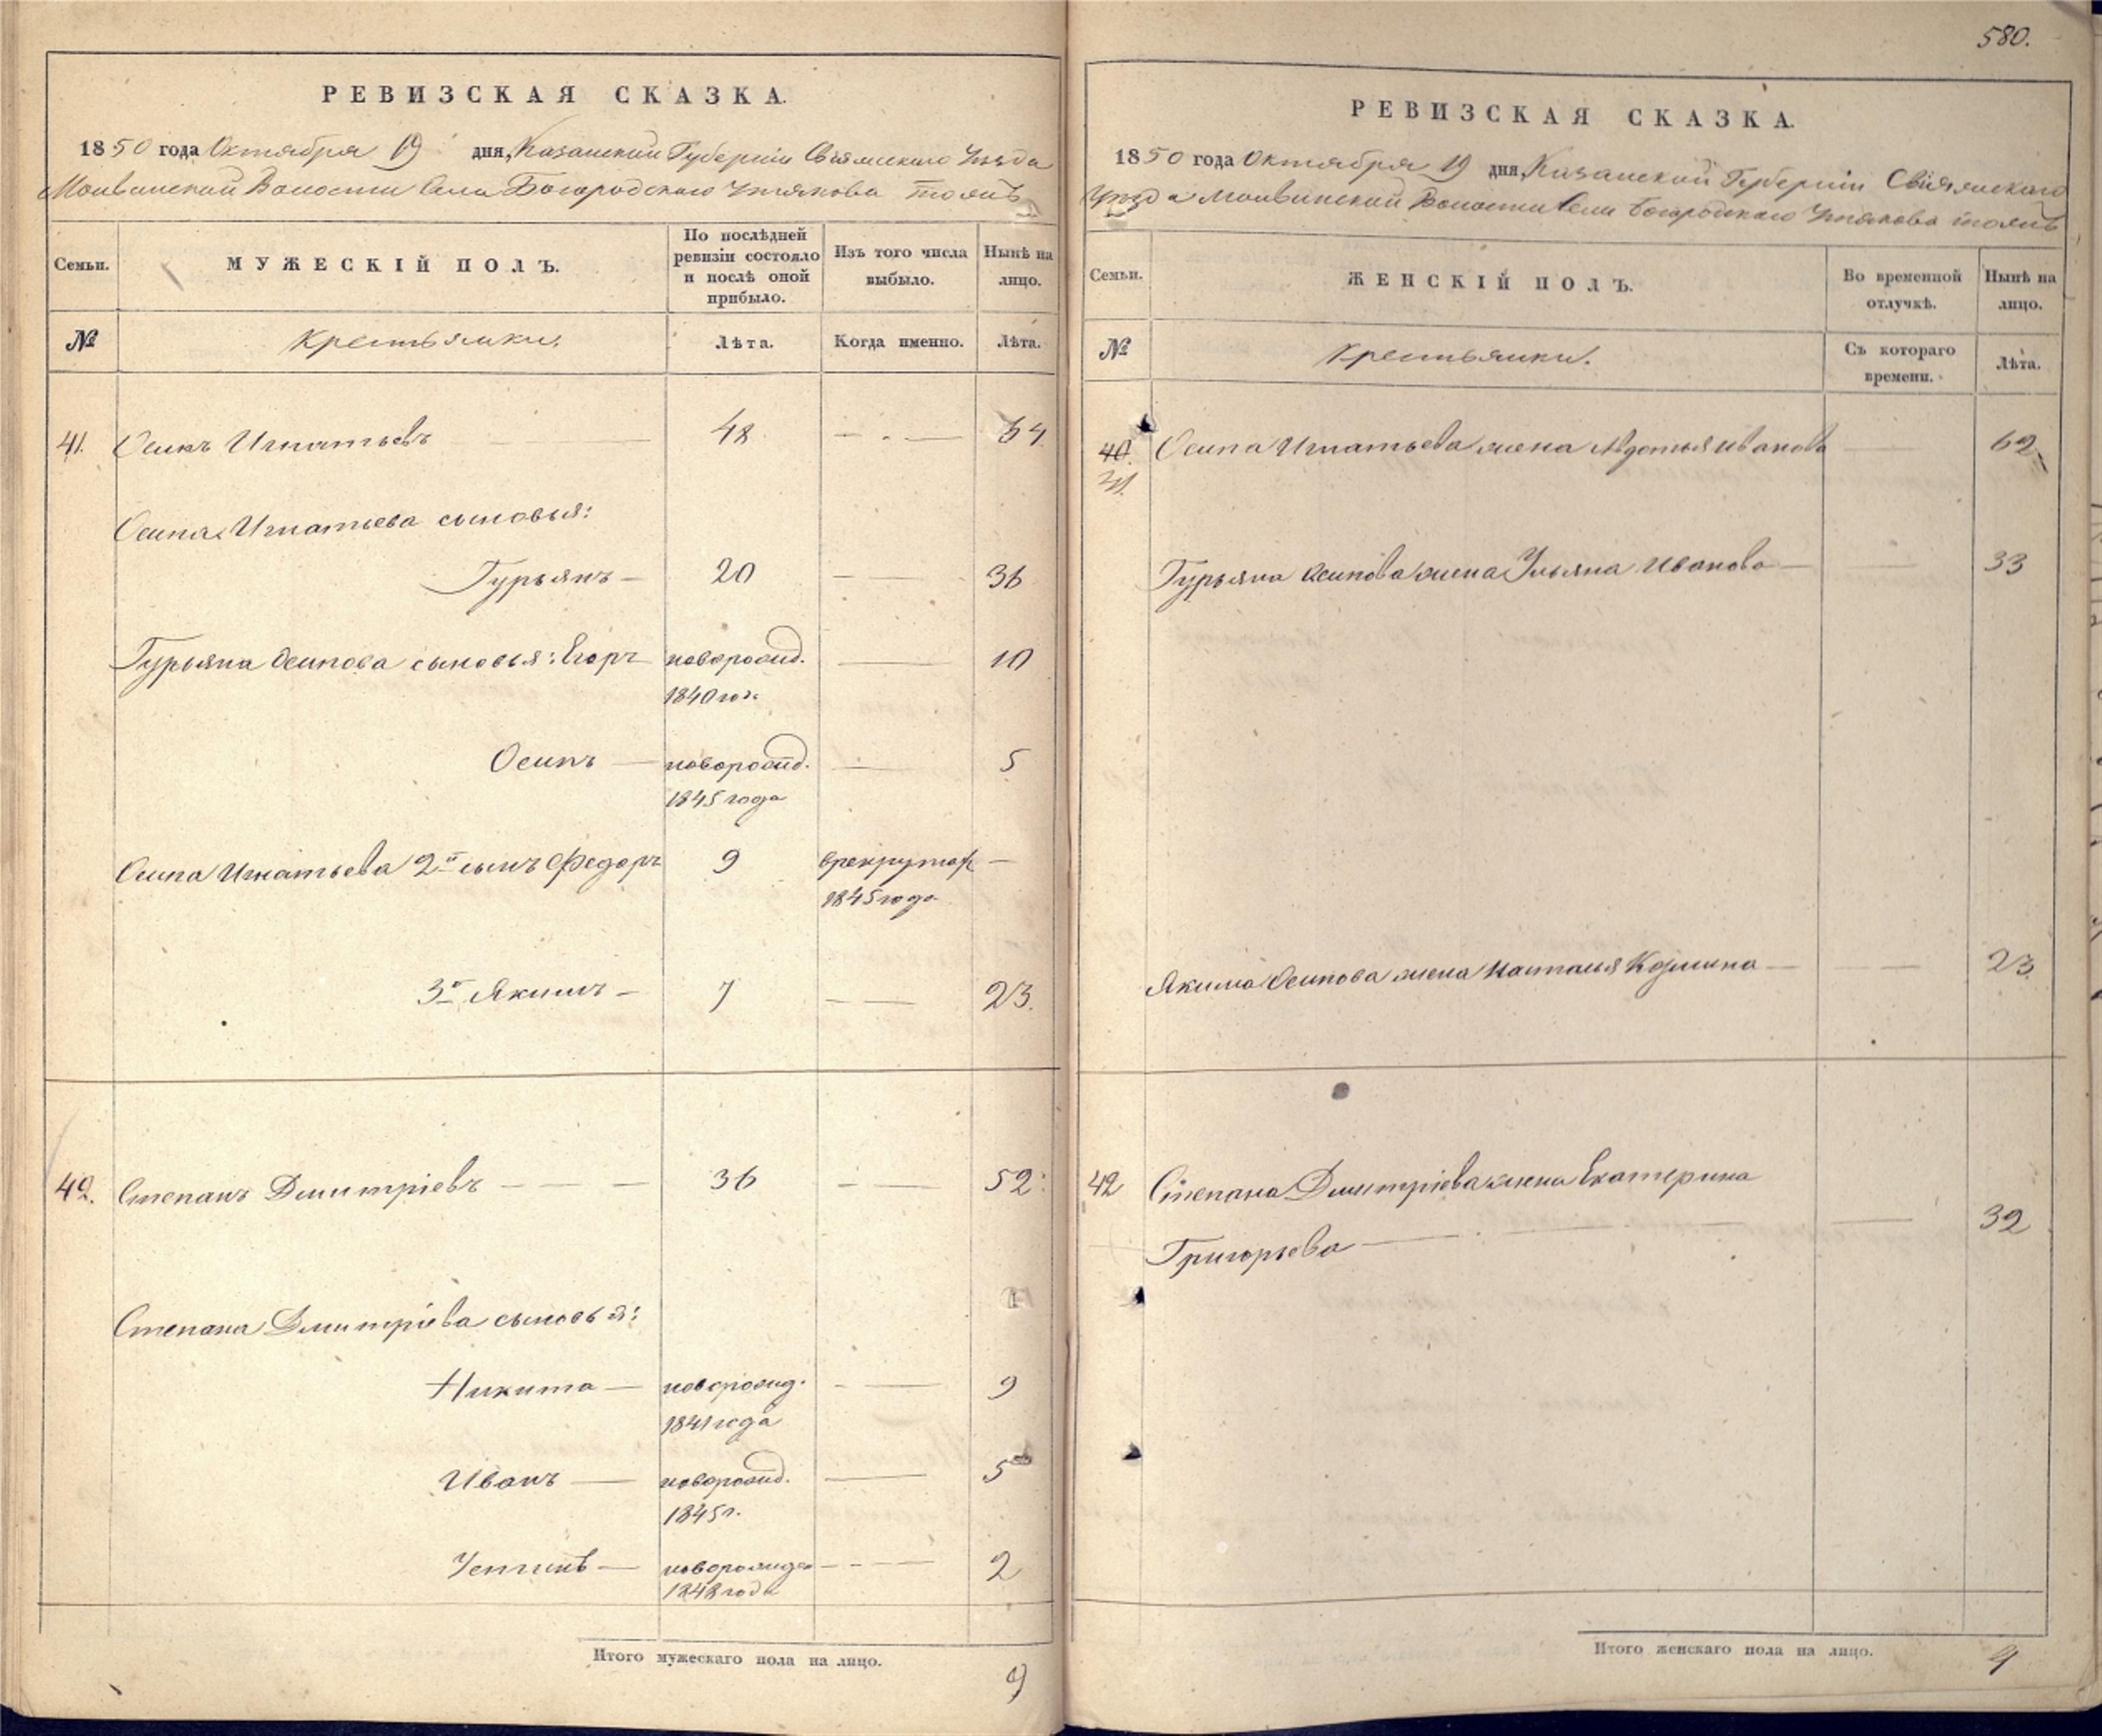 580.
РЕВИЗСКАЯ СКАЗКА.
1850 года Октября 19 дня, Казанской Губернiи Свiяжскаго Уѣзда
Волости Села Богородскаго Утякова тожъ
Семьи. МУЖЕСКІЙ ПОЛЪ. По послѣдней ревизіи состояло и послѣ оной прибыло. Изъ того числа выбыло. Нынѣ на лицо.
№ Крестьянки. Лѣта. Когда именно. Лѣта.
41. Осипъ Игнатьевъ 48 64
Осипа Игнатьева сыновья:
Гурьянъ 20 36
Гурьяна Осипова сыновья: Егоръ новорожд. 10
1840 года
Осипъ новорожд. 5
1845 года
Осипа Игнатьева 2й сынъ Федоръ 9 в рекрутах
1845 года
3й Якимъ 7 23.
42. Степанъ Дмитріевъ 36 52
Степана Дмитріева сыновья:
Никита новорожд. 9
1841 года
Иванъ новорожд. 5
1845 г.
Устинъ новорожден 2
1848 года
Итого мужескаго пола на лицо. 9
РЕВИЗСКАЯ СКАЗКА.
1850 года Октября 19 дня, Казанской Губерніи Свіяжскаго
Уѣзда Волости Села Богородскаго Утякова тожъ
Семьи. ЖЕНСКІЙ ПОЛЪ. Во временной отлучкѣ. Нынѣ на лицо.
№ Крестьянки. Съ котораго времени. Лѣта.
40. Осипа Игнатьева жена Авдотья Иванова 62
41.
Гурьяна Осипова жена Ульяна Иванова 33
Якима Осипова жена Наталья Козмина 23.
42 Степана Дмитріева жена Екатерина
Григорьева 32
Итого женскаго пола на лицо. 4